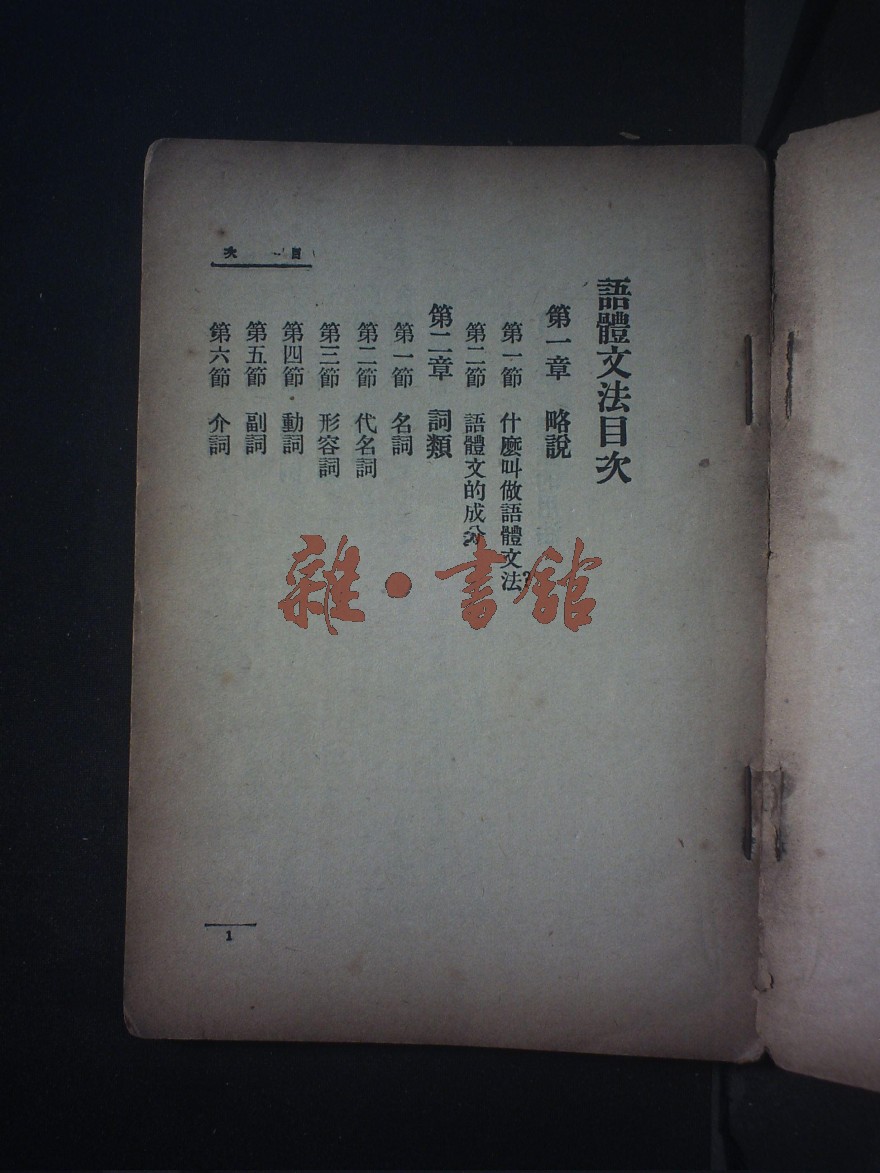 語體文法目次
第一章 略說
第一節 什麼叫做語體文法?
第二節 語體文的成分
第二章 詞類
第一節 名詞
第二節 代名詞
第三節 形容詞
第四節 動詞
第五節 副詞
第六節 介詞
目次
1
雜·書館